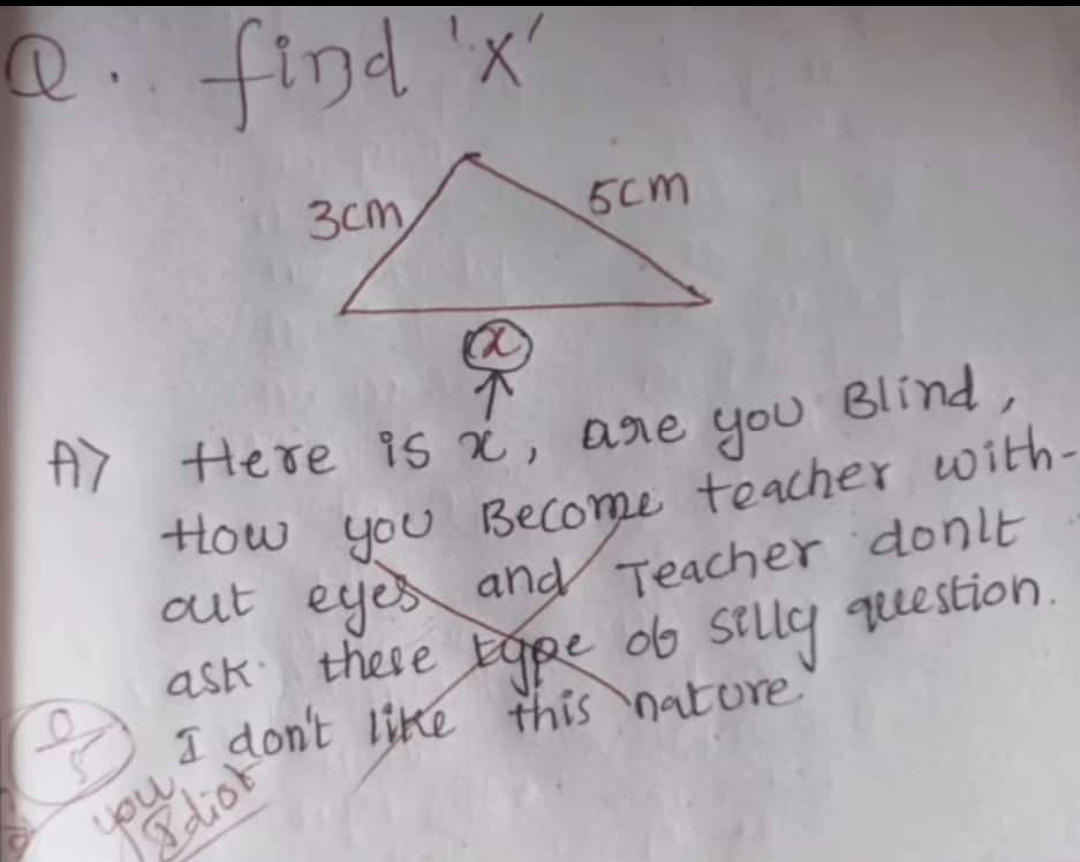 Q. find 'x'
3cm
5cm
x
A) Here is x, are you Blind,
How you Become teacher with-
out eyes and Teacher don't
ask these type of silly question.
I don't like this nature.
0/5
you
Idiot